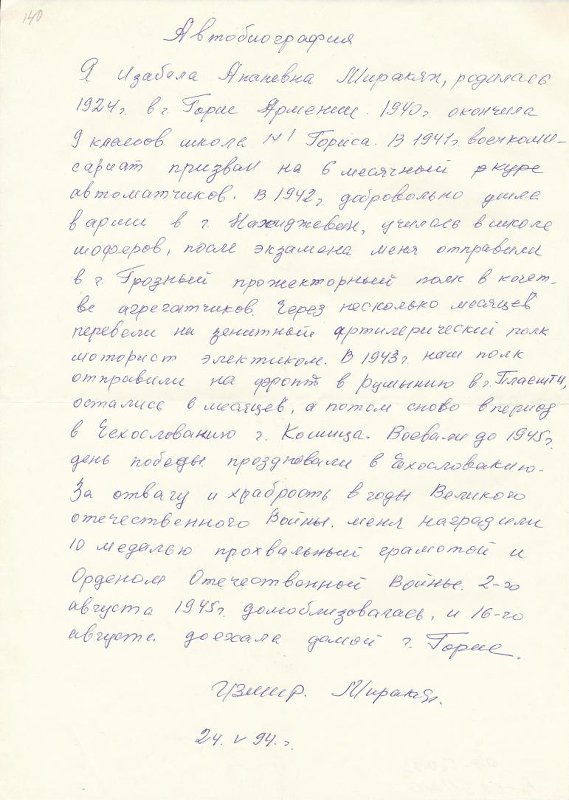 140
Автобиография
Я Изабела Ананевна Миракян, родилась
1924г в г. Горис Армении. 1940г. окончила
9 классов школа N 1 Гориса. В 1941г военкоми-
сариат призвал на 6 месячный курс
автоматчиков. В 1942г добровольно ушла
в арми в г. Нахиджеван, училась в школе
шоферов, после экзамена меня отправили
в г. Грозный прожекторный полк в качет-
ве агрегатчиков. Через несколько месяцев
перевели на зенитный артилерический полк
моторист электиком. В 1943г. наш полк
отправили на фронт в Румынию в г. Плаешти,
остались 6 месяцев, а потом снова в период
в Чехословакию г. Кошица. Воевали до 1945г.
день победы праздновали в Чехословакию.
За отвагу и храбрость в годы Великого
отечественного Войны. меня наградили
10 медалью прохвальный грамотой и
Орденом Отечественной Войны. 2-го
августа 1945г. домоблизовалась, и 16-го
августа доехала домой г. Горис.
Миракян.
24. V 94. г.